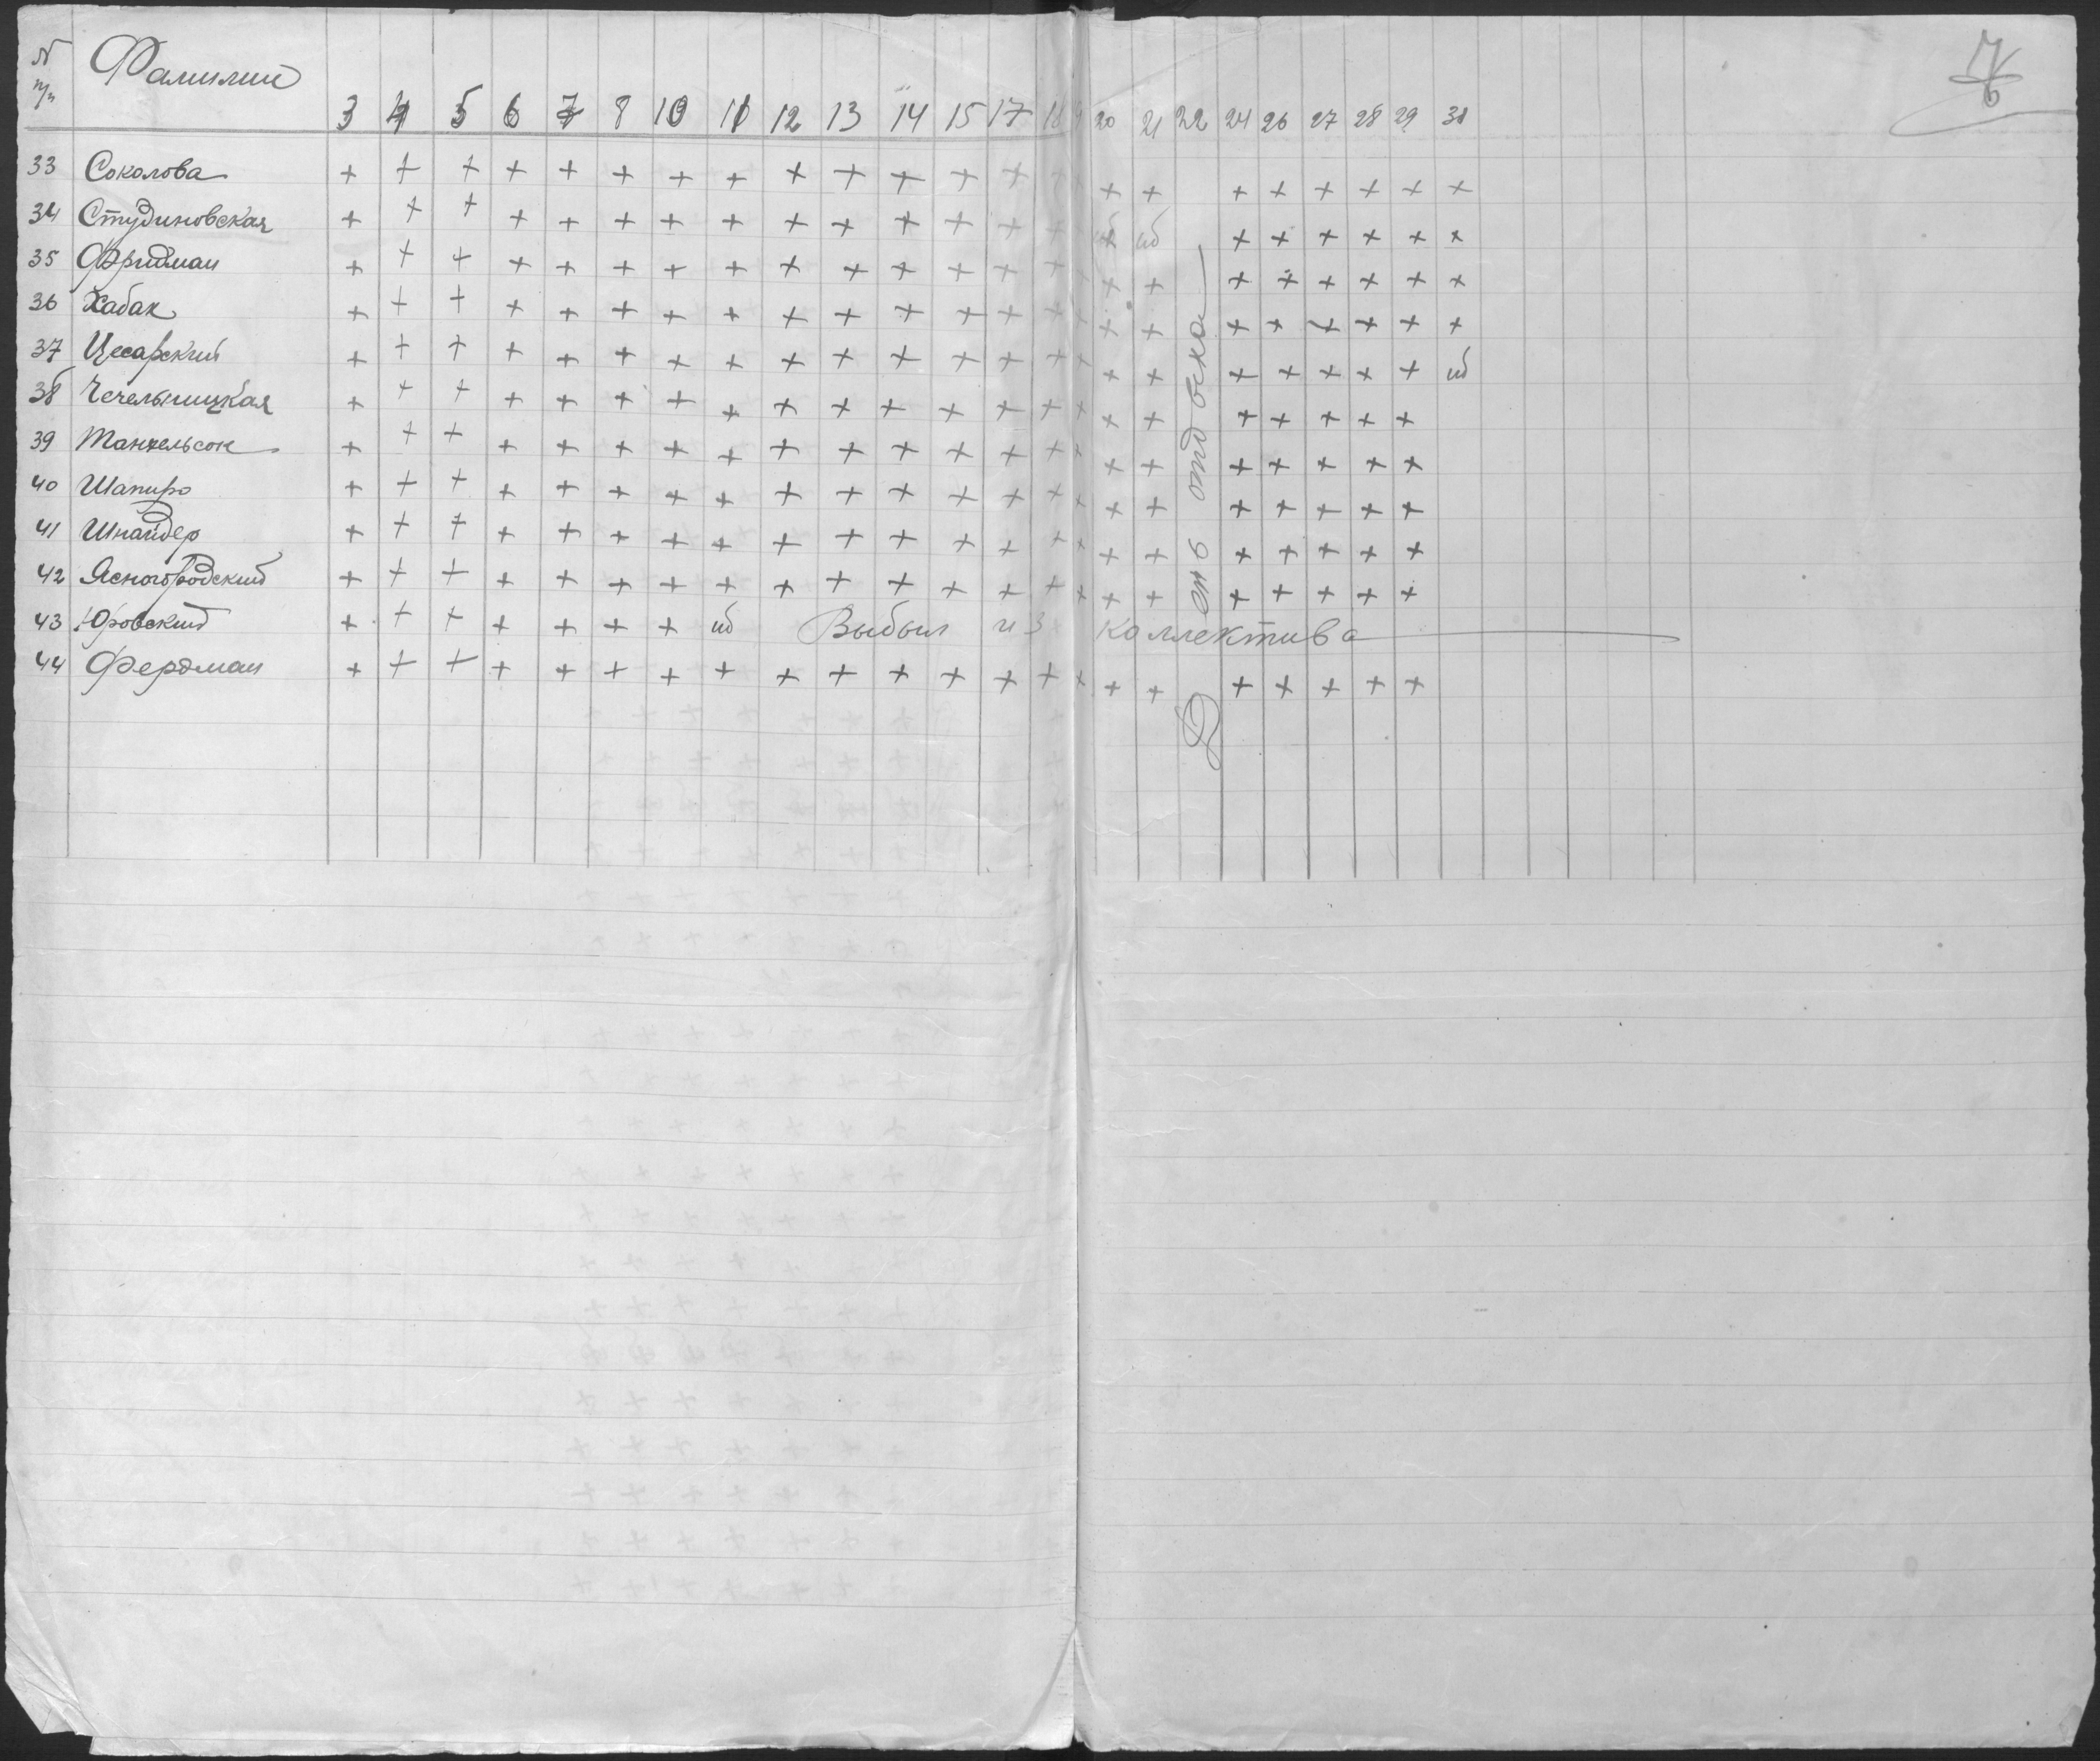 № п/п Фамилии 3 4 5 6 7 8 10 11 12 13 14 15 17 18 19 20 21 22 24 26 27 28 29 31
33 Соколова + + + + + + + + + + + + + + + + + + + + + + +
34 Студиновская + + + + + + + + + + + + + + + иб + + + + + +
35 Фридман + + + + + + + + + + + + + + + + + + + + + + +
36 Хабак + + + + + + + + + + + + + + + + + + + + + + +
37 Цесарский + + + + + + + + + + + + + + + + + + + + + + иб
38 Чечельницкая + + + + + + + + + + + + + + + + + + + + + +
39 Танхельсон + + + + + + + + + + + + + + + + + + + + + +
40 Шапиро + + + + + + + + + + + + + + + + + + + + + +
41 Шнайдер + + + + + + + + + + + + + + + + + + + + + +
42 Ясногородский + + + + + + + + + + + + + + + + + + + + + +
43 Юровский + + + + + + + иб Выбыл из коллектива
44 Фердман + + + + + + + + + + + + + + + + + + + + + +